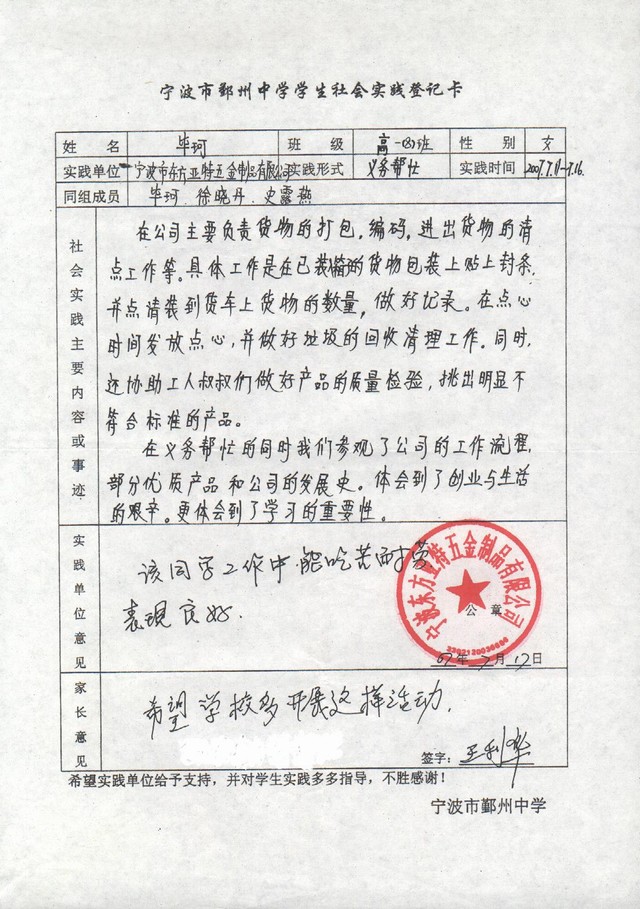 宁波市鄞州中学学生社会实践登记卡
姓名 毕珂 班级 高一(3)班 性别 女
实践单位 宁波市东方亚特五金制品有限公司 实践形式 义务帮忙 实践时间 2007.7.11-7.16.
同组成员 毕珂.徐晓丹.史露燕
社会实践主要内容或事迹
在公司主要负责货物的打包,编码,进出货物的清
点工作等。具体工作是在已装箱的货物包装上贴上封条,
并点清装到货车上货物的数量,做好记录。在点心
时间发放点心,并做好垃圾的回收清理工作。同时,
还协助工人叔叔们做好产品的质量检验,挑出明显不
符合标准的产品。
在义务帮忙的同时我们参观了公司的工作流程,
部分优质产品和公司的发展史。体会到了创业与生活
的艰辛。更体会到了学习的重要性。
实践单位意见
该同学工作中能吃苦耐劳
表现良好.
宁波东方亚特五金制品有限公司
公章
3302130036604
07年7月17日
家长意见
希望学校多开展这样活动.
签字: 王利华
希望实践单位给予支持,并对学生实践多多指导,不胜感谢!
宁波市鄞州中学